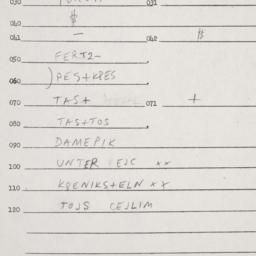 030 031
040 $
041 — 042 $
050 FERT2-
060 )PES+KPES
070 TAS+ 071 +
080 TAS+TOS
090 DAMEPIK
100 UNTER EJC xx
110 KPENIKS+ELN xx
120 TOJS CEJLIM